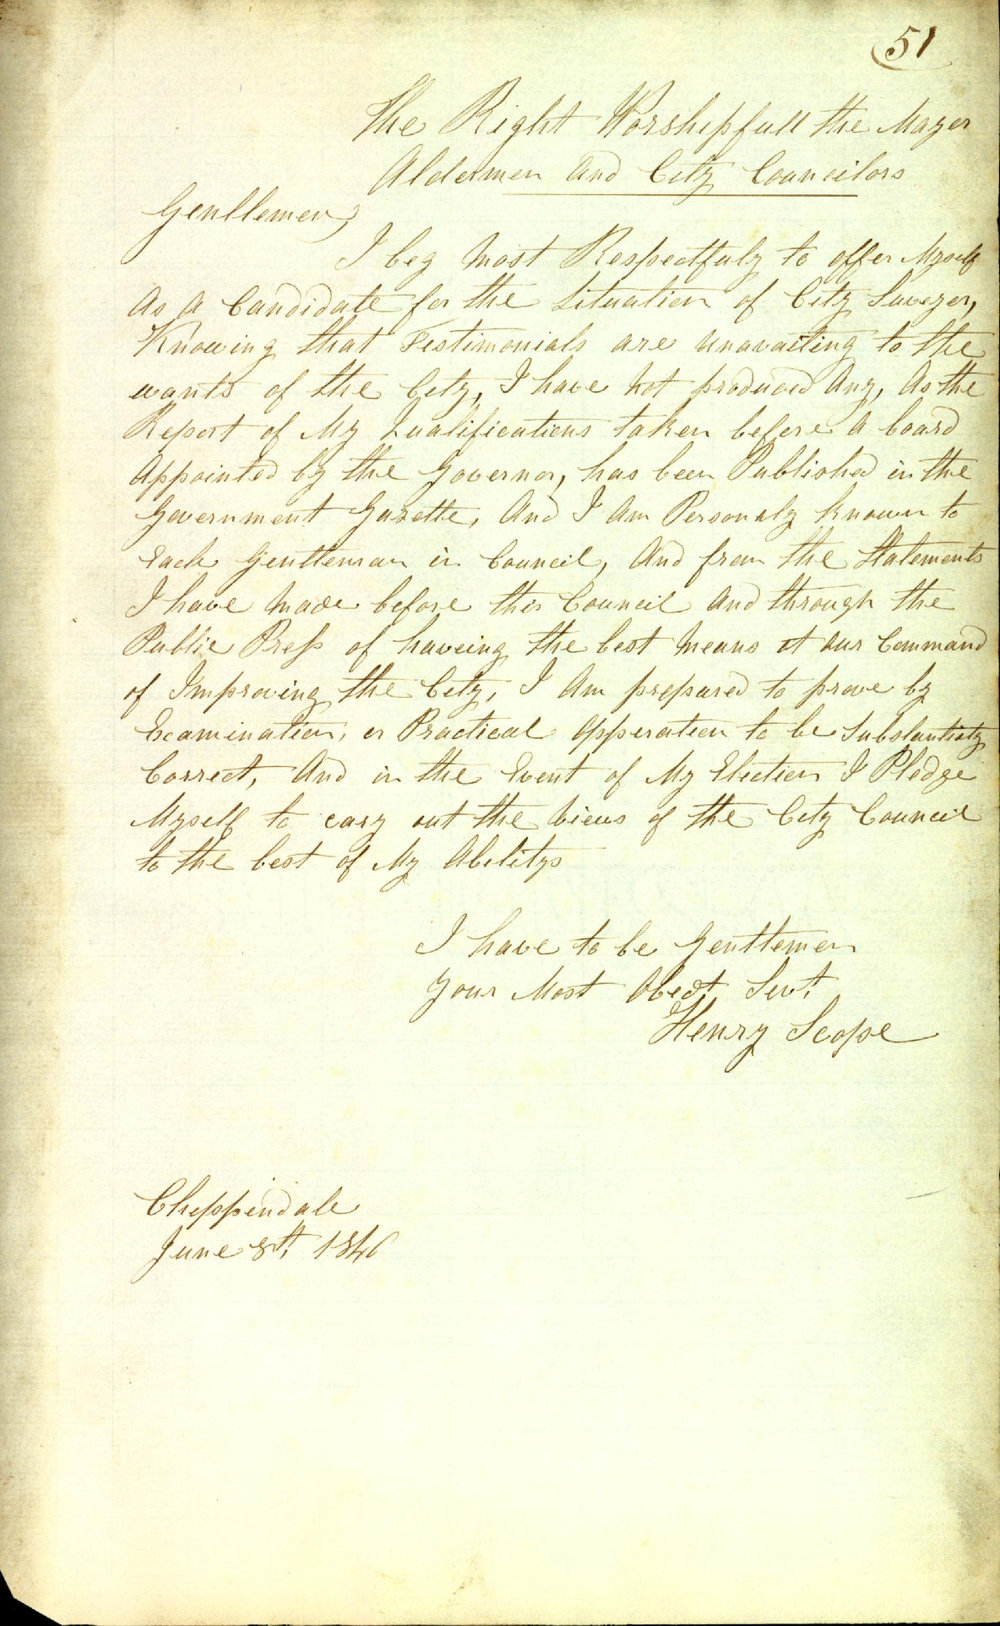 51
The Right Worshipfull the Mayer
Aldermen and City Councilors
Gentlemen,
I beg most Respectfuly to offer Myself
As A Candidate for the Situation of City Suveyer,
Knowing that Testimonials are unavailing to the
wants of the City, I have not produced Any, As the
Report of My Qualifications taken before A board
Appointed by the Governor, has been Published in the
Government Gazette, And I Am Personaly known to
Each Gentleman in Council, And from the Statements
I have Made before this Council And through the
Public Press of haveing the best Means at our Command
of Improving the City, I Am prepared to prove by
Examination, or Practical Opperation to be Substantialy
Correct, And in the Event of My Election I Pledge
Myself to cary out the Views of the City Council
to the best of My Abilitys
I have to be Gentlemen
Your Most Obedt Servt
Henry Scope
Chippendale
June 8th 1846